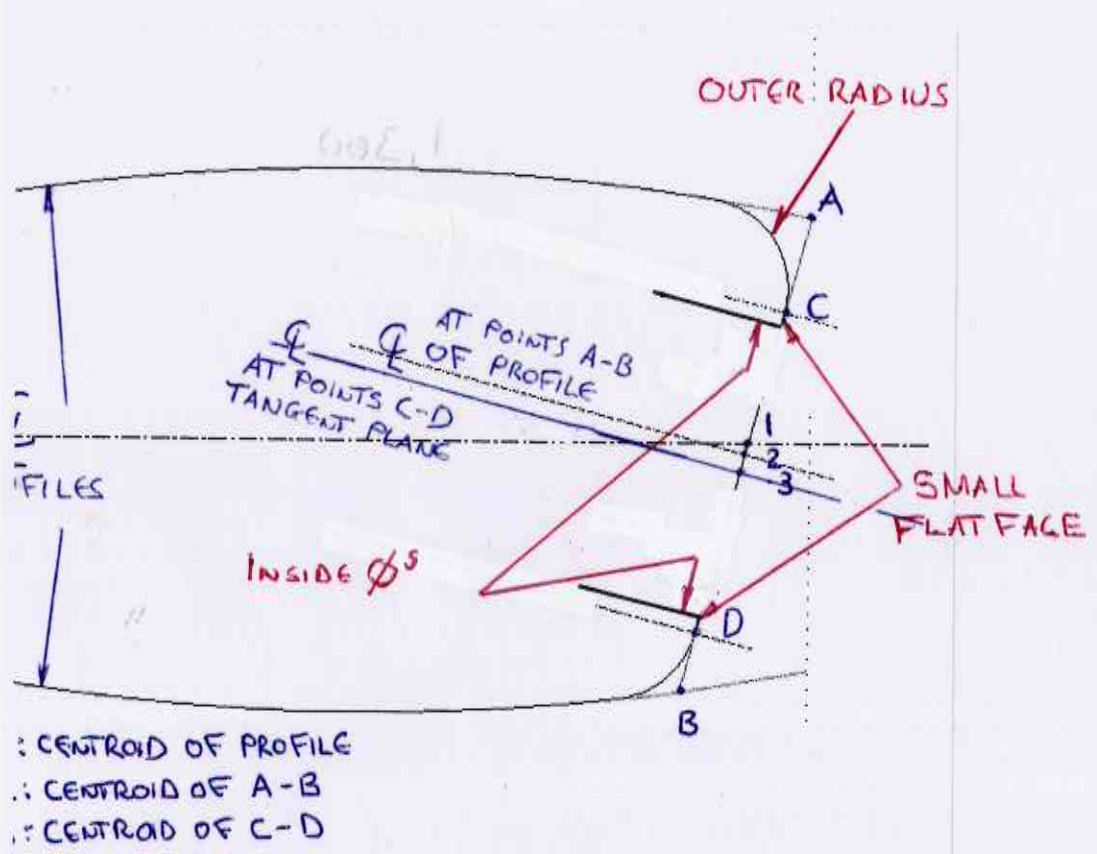 OUTER RADIUS
A
C
℄ AT POINTS A-B
OF PROFILE
℄
AT POINTS C-D
TANGENT PLANE
1
2
3
FILES
SMALL
FLAT FACE
INSIDE Øs
D
B
: CENTROID OF PROFILE
.: CENTROID OF A-B
.: CENTROID OF C-D